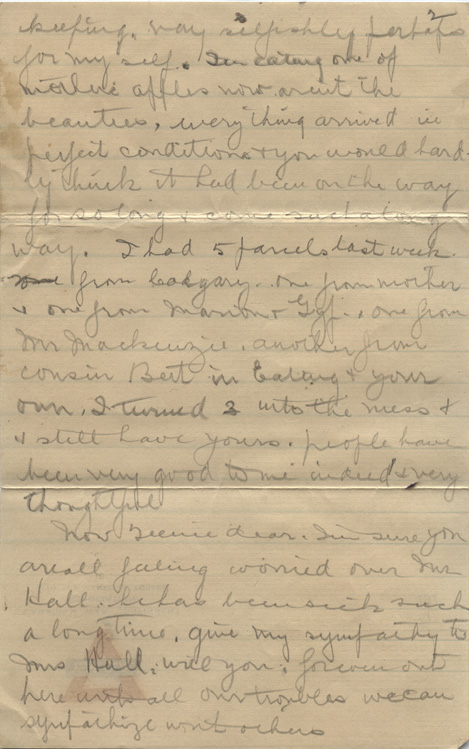 2
keeping. very selfishly perhaps
for my self. I'm eating one of
mother's apples now. arent the
beauties, everything arrived in
perfect condition & you would hard-
ly think it had been on the way
for so long & come such a long
way. I had 5 parcels last week.
from Calgary. one from mother
& one from Marion & , one from
Mr Mackenzie. another from
cousin Bert in Ealing & your
own. I turned 3 into the mess &
& still have yours. people have
been very good to me indeed & very
thoughtful
Now Teenie dear. I'm sure you
are all feeling worried over Mr
Hall. he has been sick such
a long time, give my sympathy to
Mrs Hall, will you, for even out
here with all our troubles we can
sympathize with others